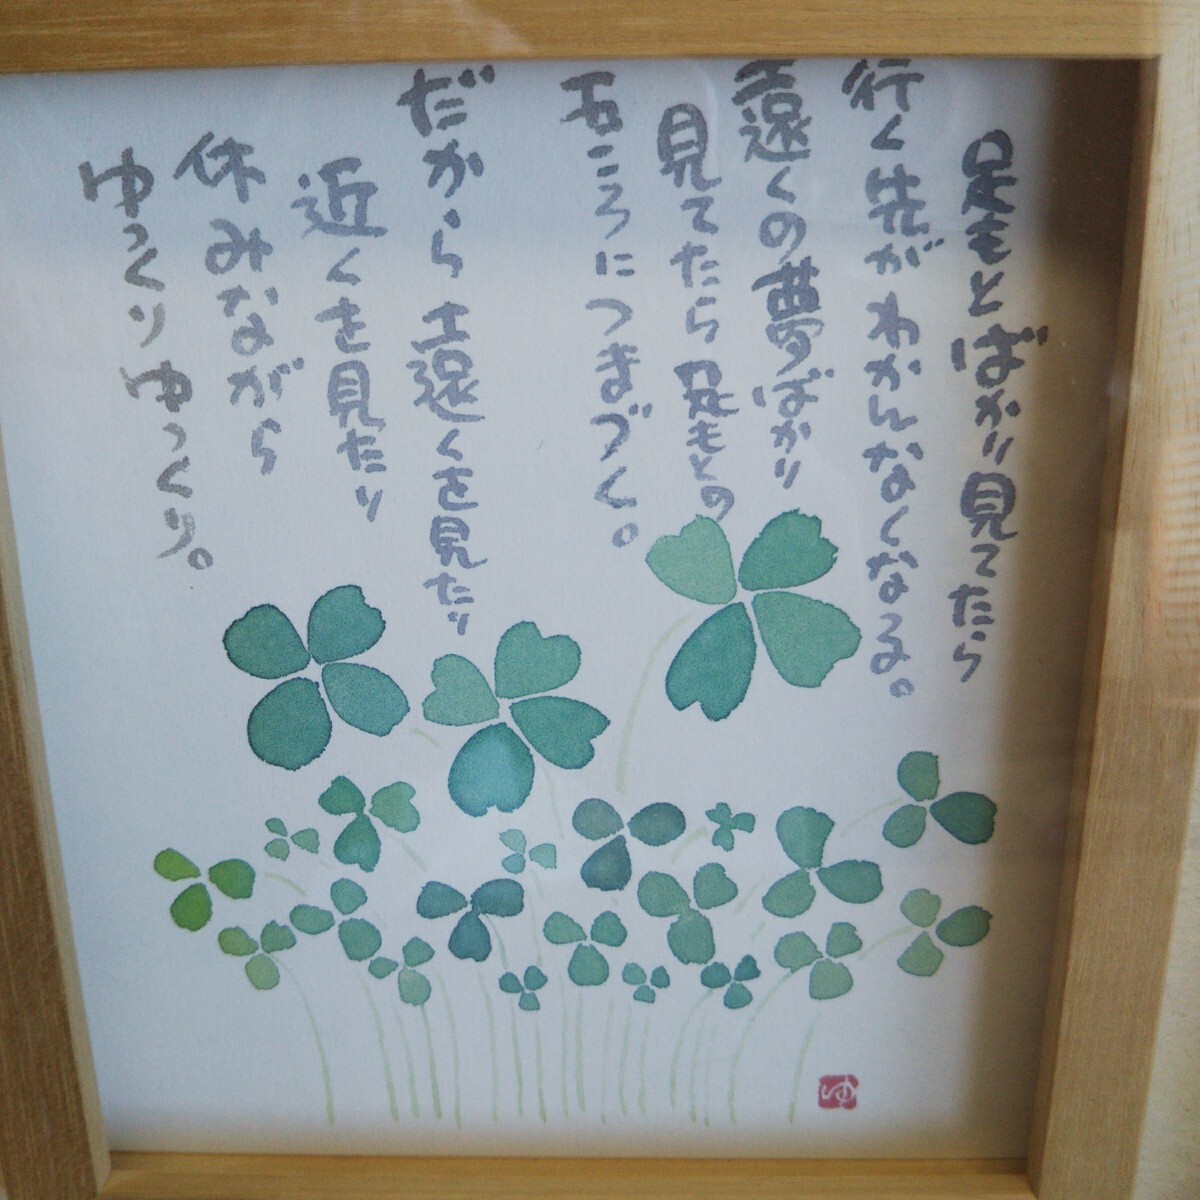 足もとばかり見てたら
行く先がわかんなくなる。
遠くの夢ばかり
見てたら足もとの
石ころにつまづく。
だから遠くを見たり
近くを見たり
休みながら
ゆっくりゆっくり。
ゆ